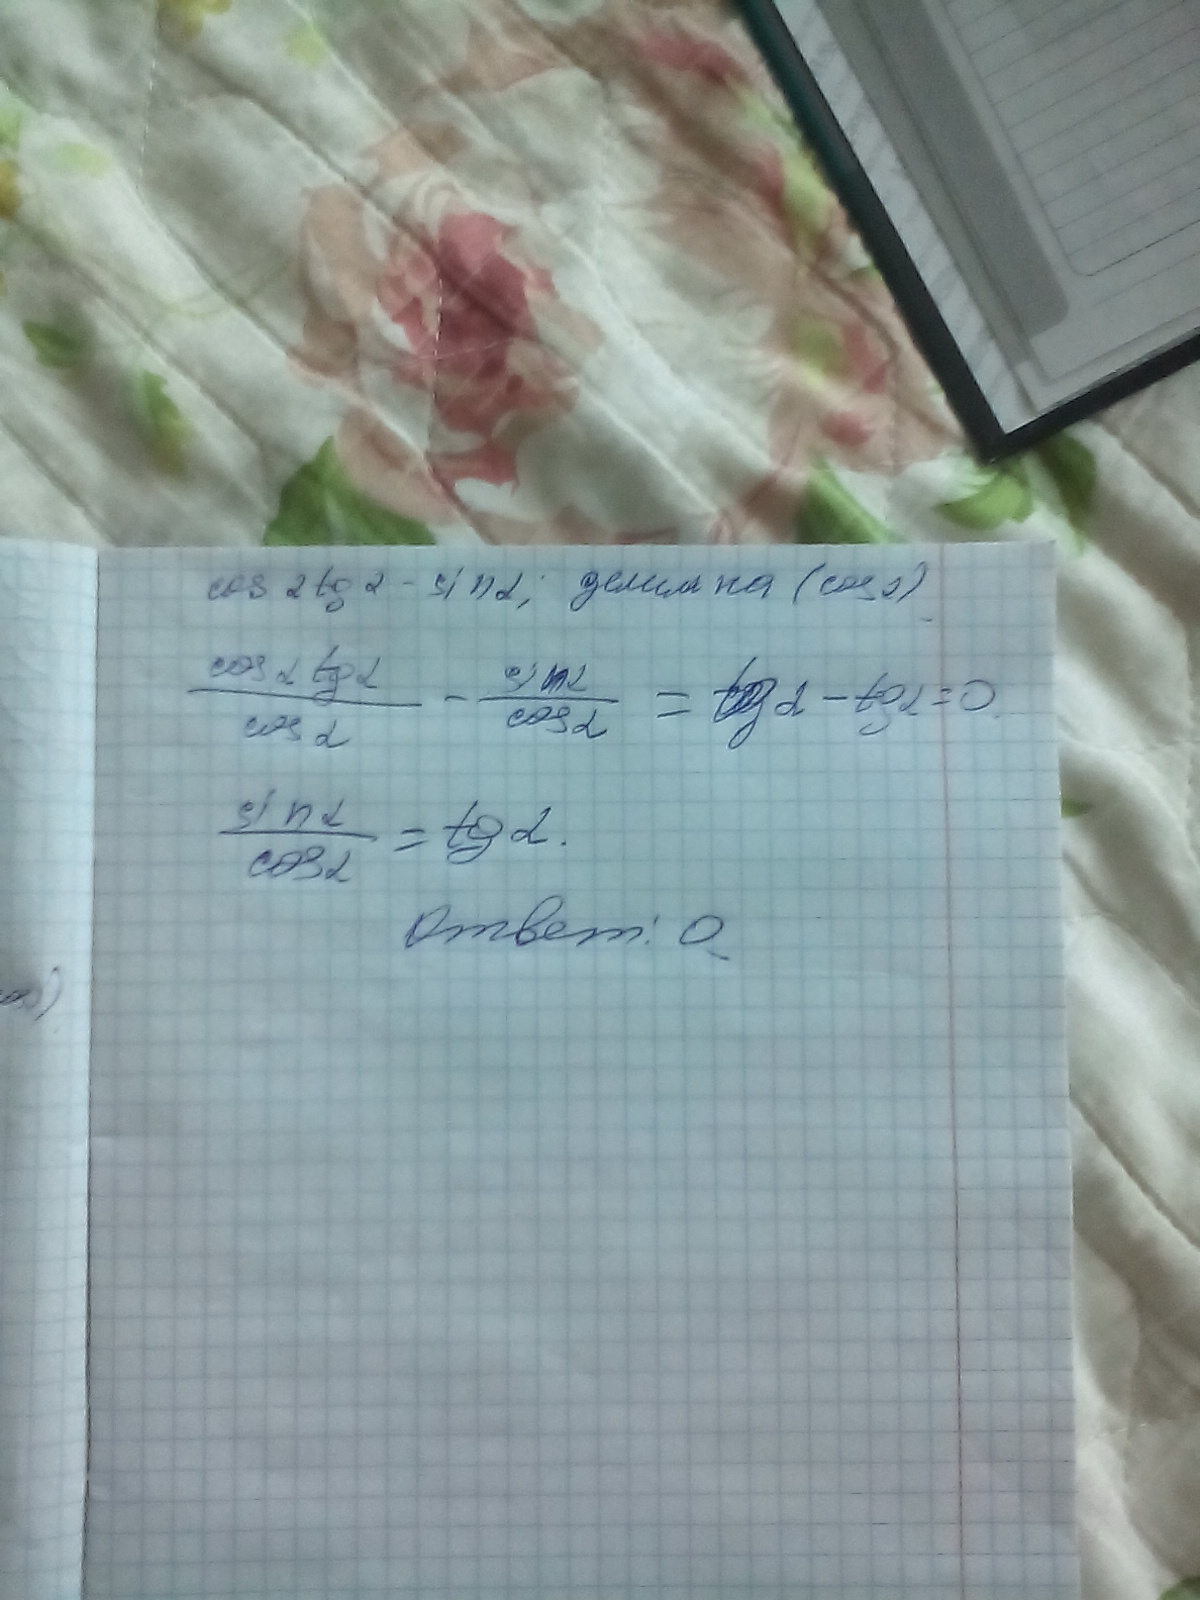 cos α tg α - sin α; делим на (cos α)
cos α tg α / cos α - sin α / cos α = tg α - tg α = 0.
sin α / cos α = tg α.
Ответ: 0